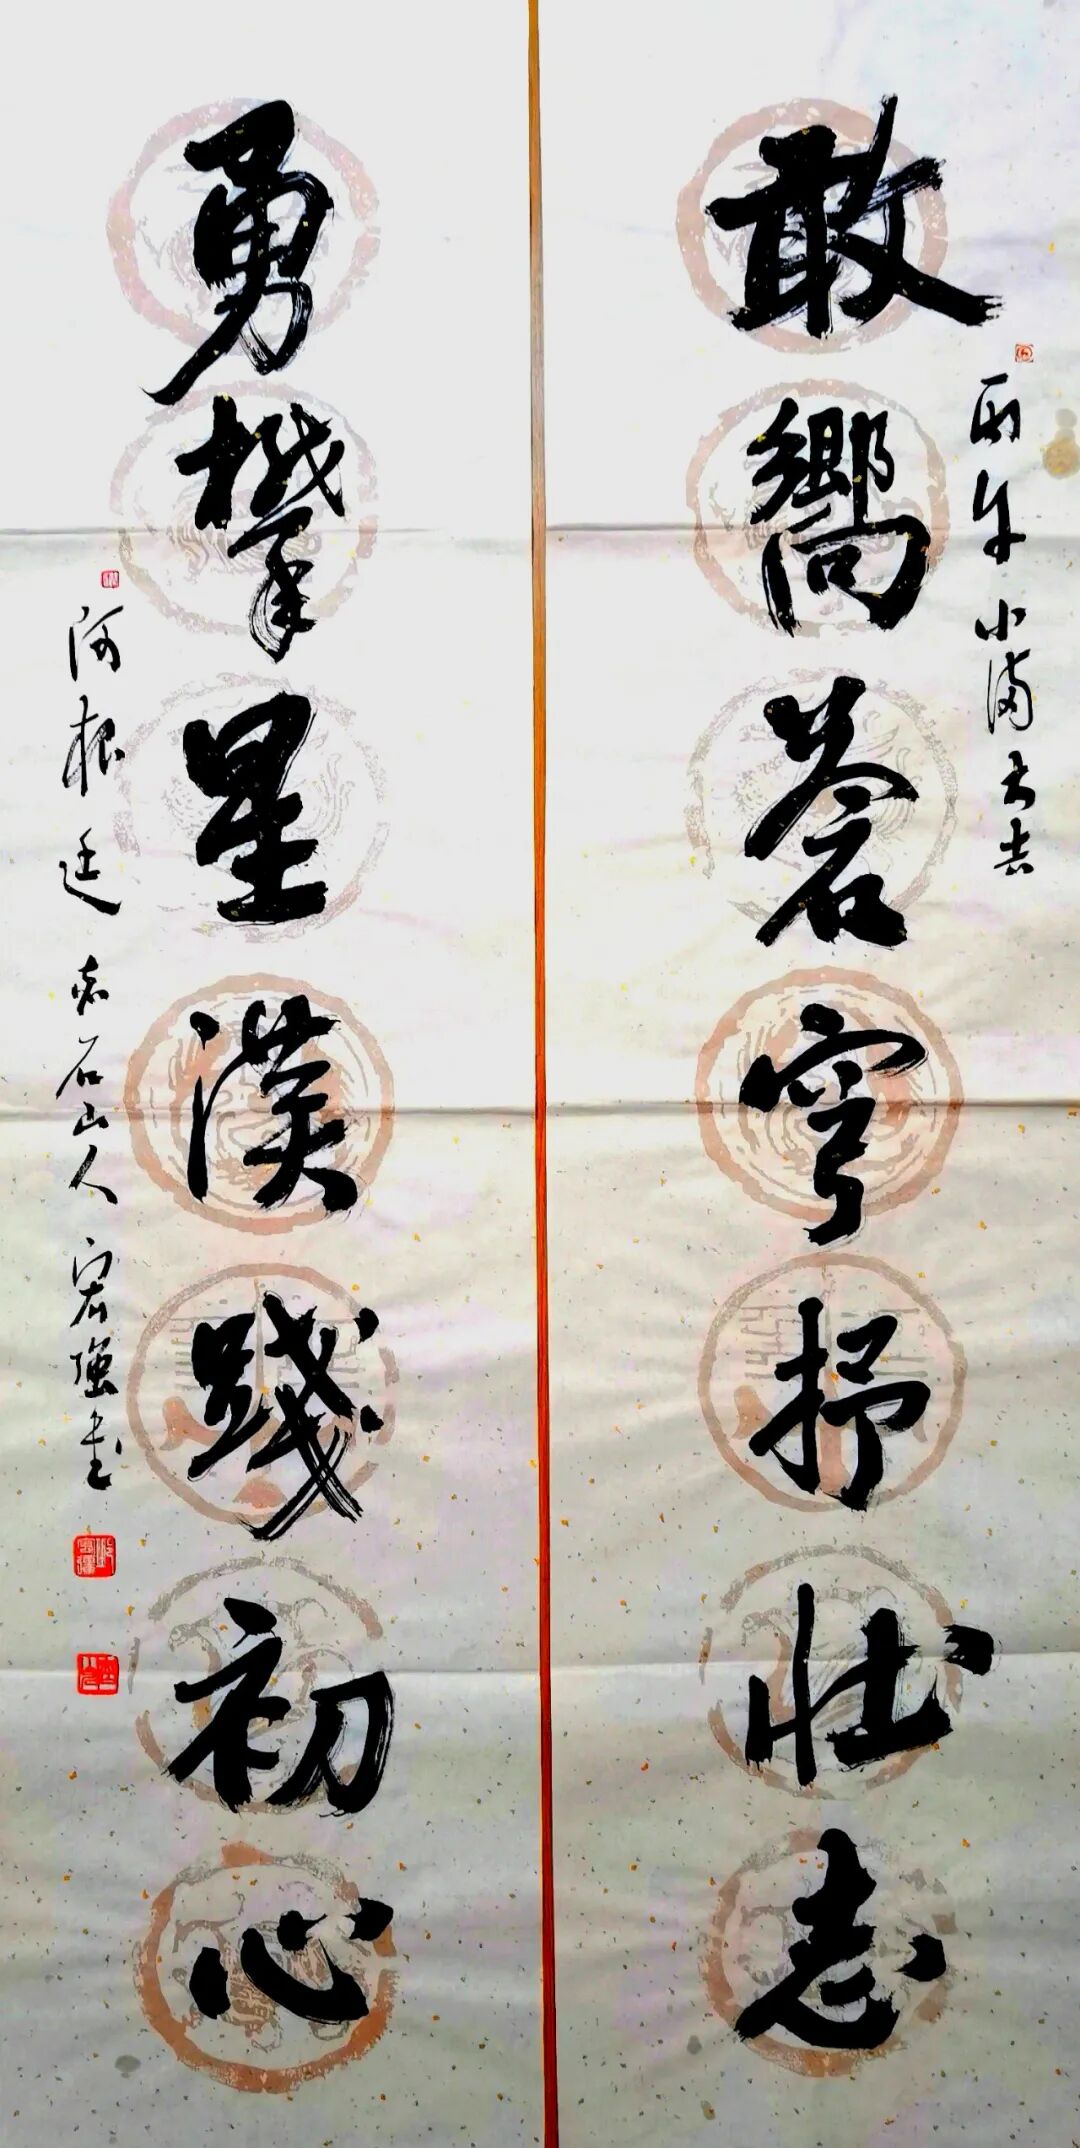 丙午小滿大吉
敢嚮蒼穹抒壯志
勇攀星漢踐初心
阿根廷 石山人 強書